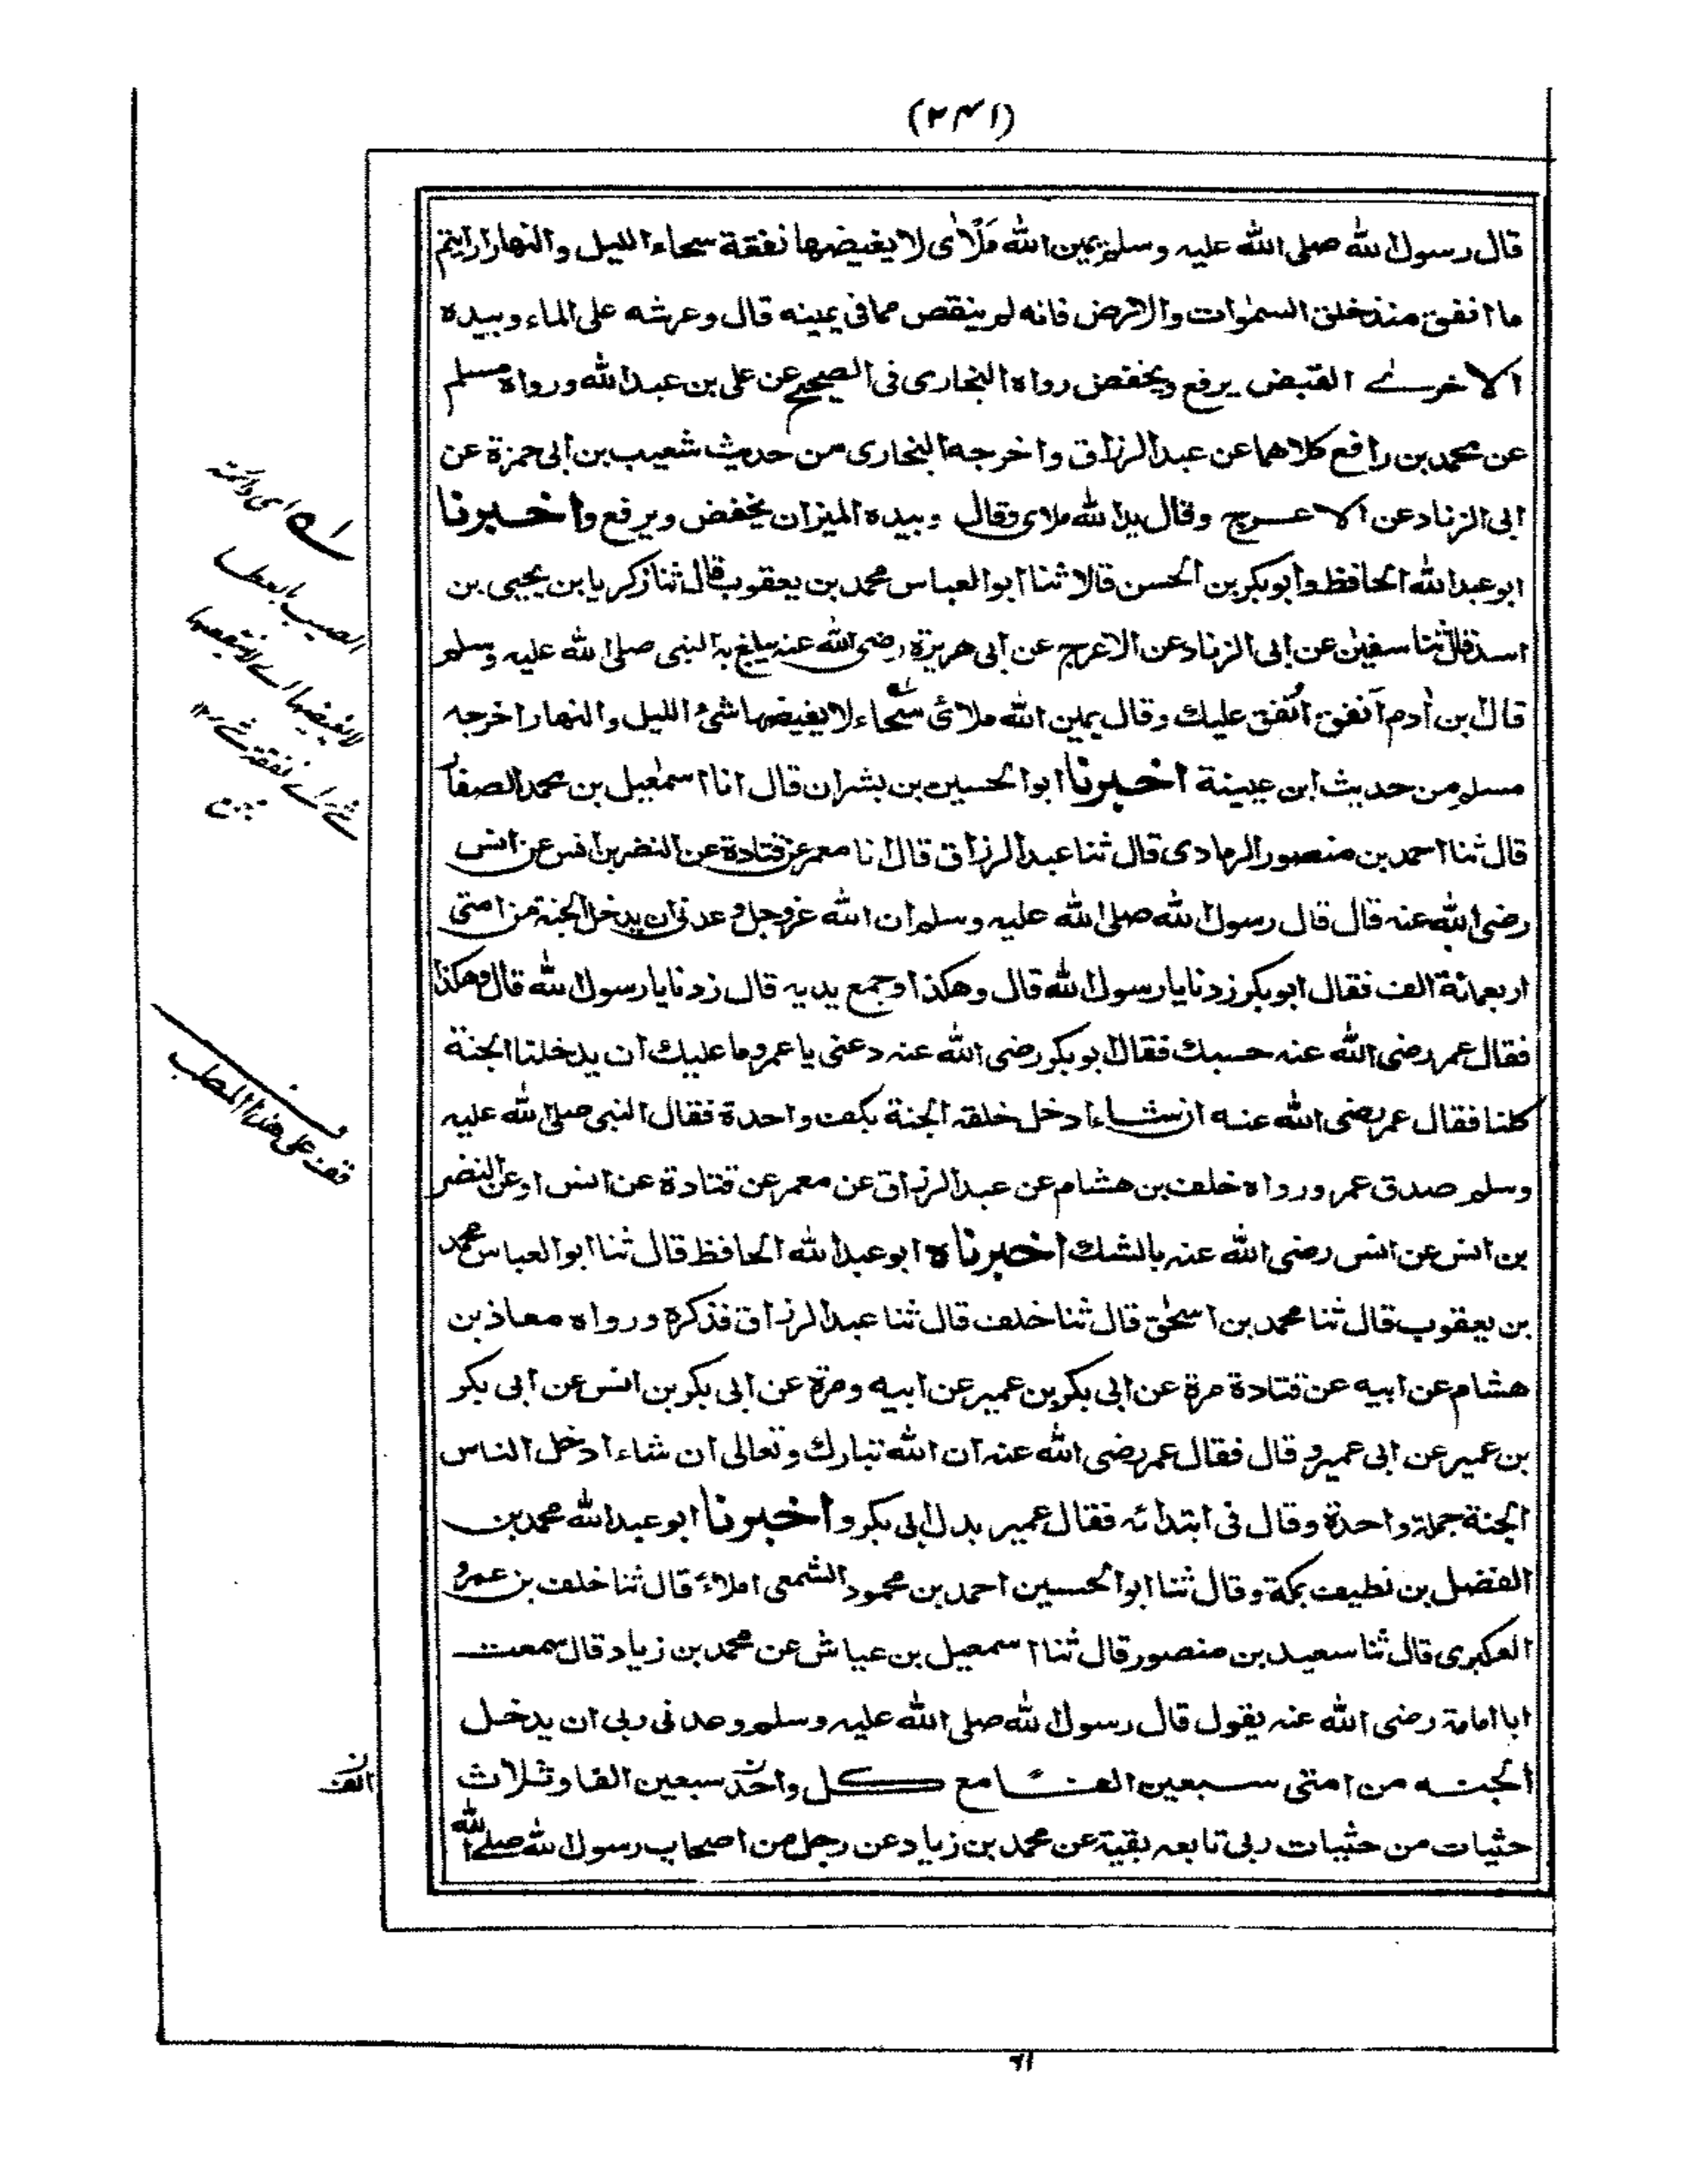 (٢٤١)
قال رسول الله صلى الله عليه وسلم يمين الله مَلْاٰى لا يغيضها نفقة سحاء الليل والنهار ارايتم
ما انفق منذ خلق السمٰوات والارض فانه لم ينقص مما فى يمينه قال وعرشه على الماء وبيده
الاخرىٰ القبض يرفع ويخفض رواه البخارى فى الصحيح عن على بن عبد الله ورواه مسلم
عن محمد بن رافع كلاهما عن عبد الرزاق واخرجه البخارى من حديث شعيب بن ابى حمزة عن
ابى الزناد عن الاعرج وقال يد الله ملاى وقال وبيده الميزان يخفض ويرفع واخبرنا
ابو عبد الله الحافظ وابو بكر بن الحسن قالا ثنا ابو العباس محمد بن يعقوب قال ثنا زكريا بن يحيى بن
اسد قال ثنا سفيٰن عن ابى الزناد عن الاعرج عن ابى هريرة رضى الله عنه يبلغ به النبى صلى الله عليه وسلم
قال ابن اٰدم اَنفق اُنفق عليك وقال يمين الله ملائ سحاء لا يغيضها شئ الليل والنهار اخرجه
مسلم من حديث ابن عيينة اخبرنا ابو الحسين بن بشران قال انا اسمٰعيل بن محمد الصفار
قال ثنا احمد بن منصور الرمادى قال ثنا عبد الرزاق قال انا معمر عن قتادة عن النضر بن انس عن انس
رضى الله عنه قال قال رسول الله صلى الله عليه وسلم ان الله عز وجل وعدنى ان يدخل الجنة من امتى
اربعمائة الف فقال ابو بكر زدنا يا رسول الله قال وهكذا وجمع يديه قال زدنا يا رسول الله قال وهكذا
فقال عمر رضى الله عنه حسبك فقال ابو بكر رضى الله عنه دعنى يا عمر وما عليك ان يدخلنا الجنة
كلنا فقال عمر رضى الله عنه ان شاء ادخل خلقه الجنة بكف واحدة فقال النبى صلى الله عليه
وسلم صدق عمر ورواه خلف بن هشام عن عبد الرزاق عن معمر عن قتادة عن انس او عن النضر
بن انس عن انس رضى الله عنه بالشك اخبرناه ابو عبد الله الحافظ قال ثنا ابو العباس محمد
بن يعقوب قال ثنا محمد بن اسحٰق قال ثنا خلف قال ثنا عبد الرزاق فذكره ورواه معاذ بن
هشام عن ابيه عن قتادة مرة عن ابى بكر بن عمير عن ابيه ومرة عن ابى بكر بن انس عن ابى بكر
بن عمير عن ابى عمير وقال فقال عمر رضى الله عنه ان الله تبارك وتعالى ان شاء ادخل الناس
الجنة جملة واحدة وقال فى ابتدائه فقال عمير بدل ابى بكر واخبرنا ابو عبد الله محمد بن
الفضل بن نظيف بمكة وقال ثنا ابو الحسين احمد بن محمود الشمعى املاءً قال ثنا خلف بن عمرو
العكبرى قال ثنا سعيد بن منصور قال ثنا اسمعيل بن عياش عن محمد بن زياد قال سمعت
ابا امامة رضى الله عنه يقول قال رسول الله صلى الله عليه وسلم وعدنى ربى ان يدخل
الجنه من امتى سبعين الفا مع كل واحد سبعين الفا وثلاث
حثيات من حثيات ربى تابعه بقية عن محمد بن زياد عن رجل من اصحاب رسول الله صلى الله
الصيب بالعطا
قف على هذا المطلب
الف